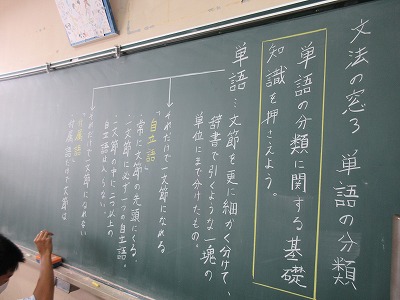 文法の窓3 単語の分類
単語の分類に関する基礎
知識を押さえよう。
単語…文節を更に細かく分けて、
辞書で引くような一塊の
単位にまで分けたもの。
それだけで一文節になれる
「自立語」
常に文節の先頭にくる。
一文節に必ず一つの自立語。
一文節の中に二つ以上の
自立語は入らない。
それだけで一文節になれない
「付属語」
付属語だけで文節は